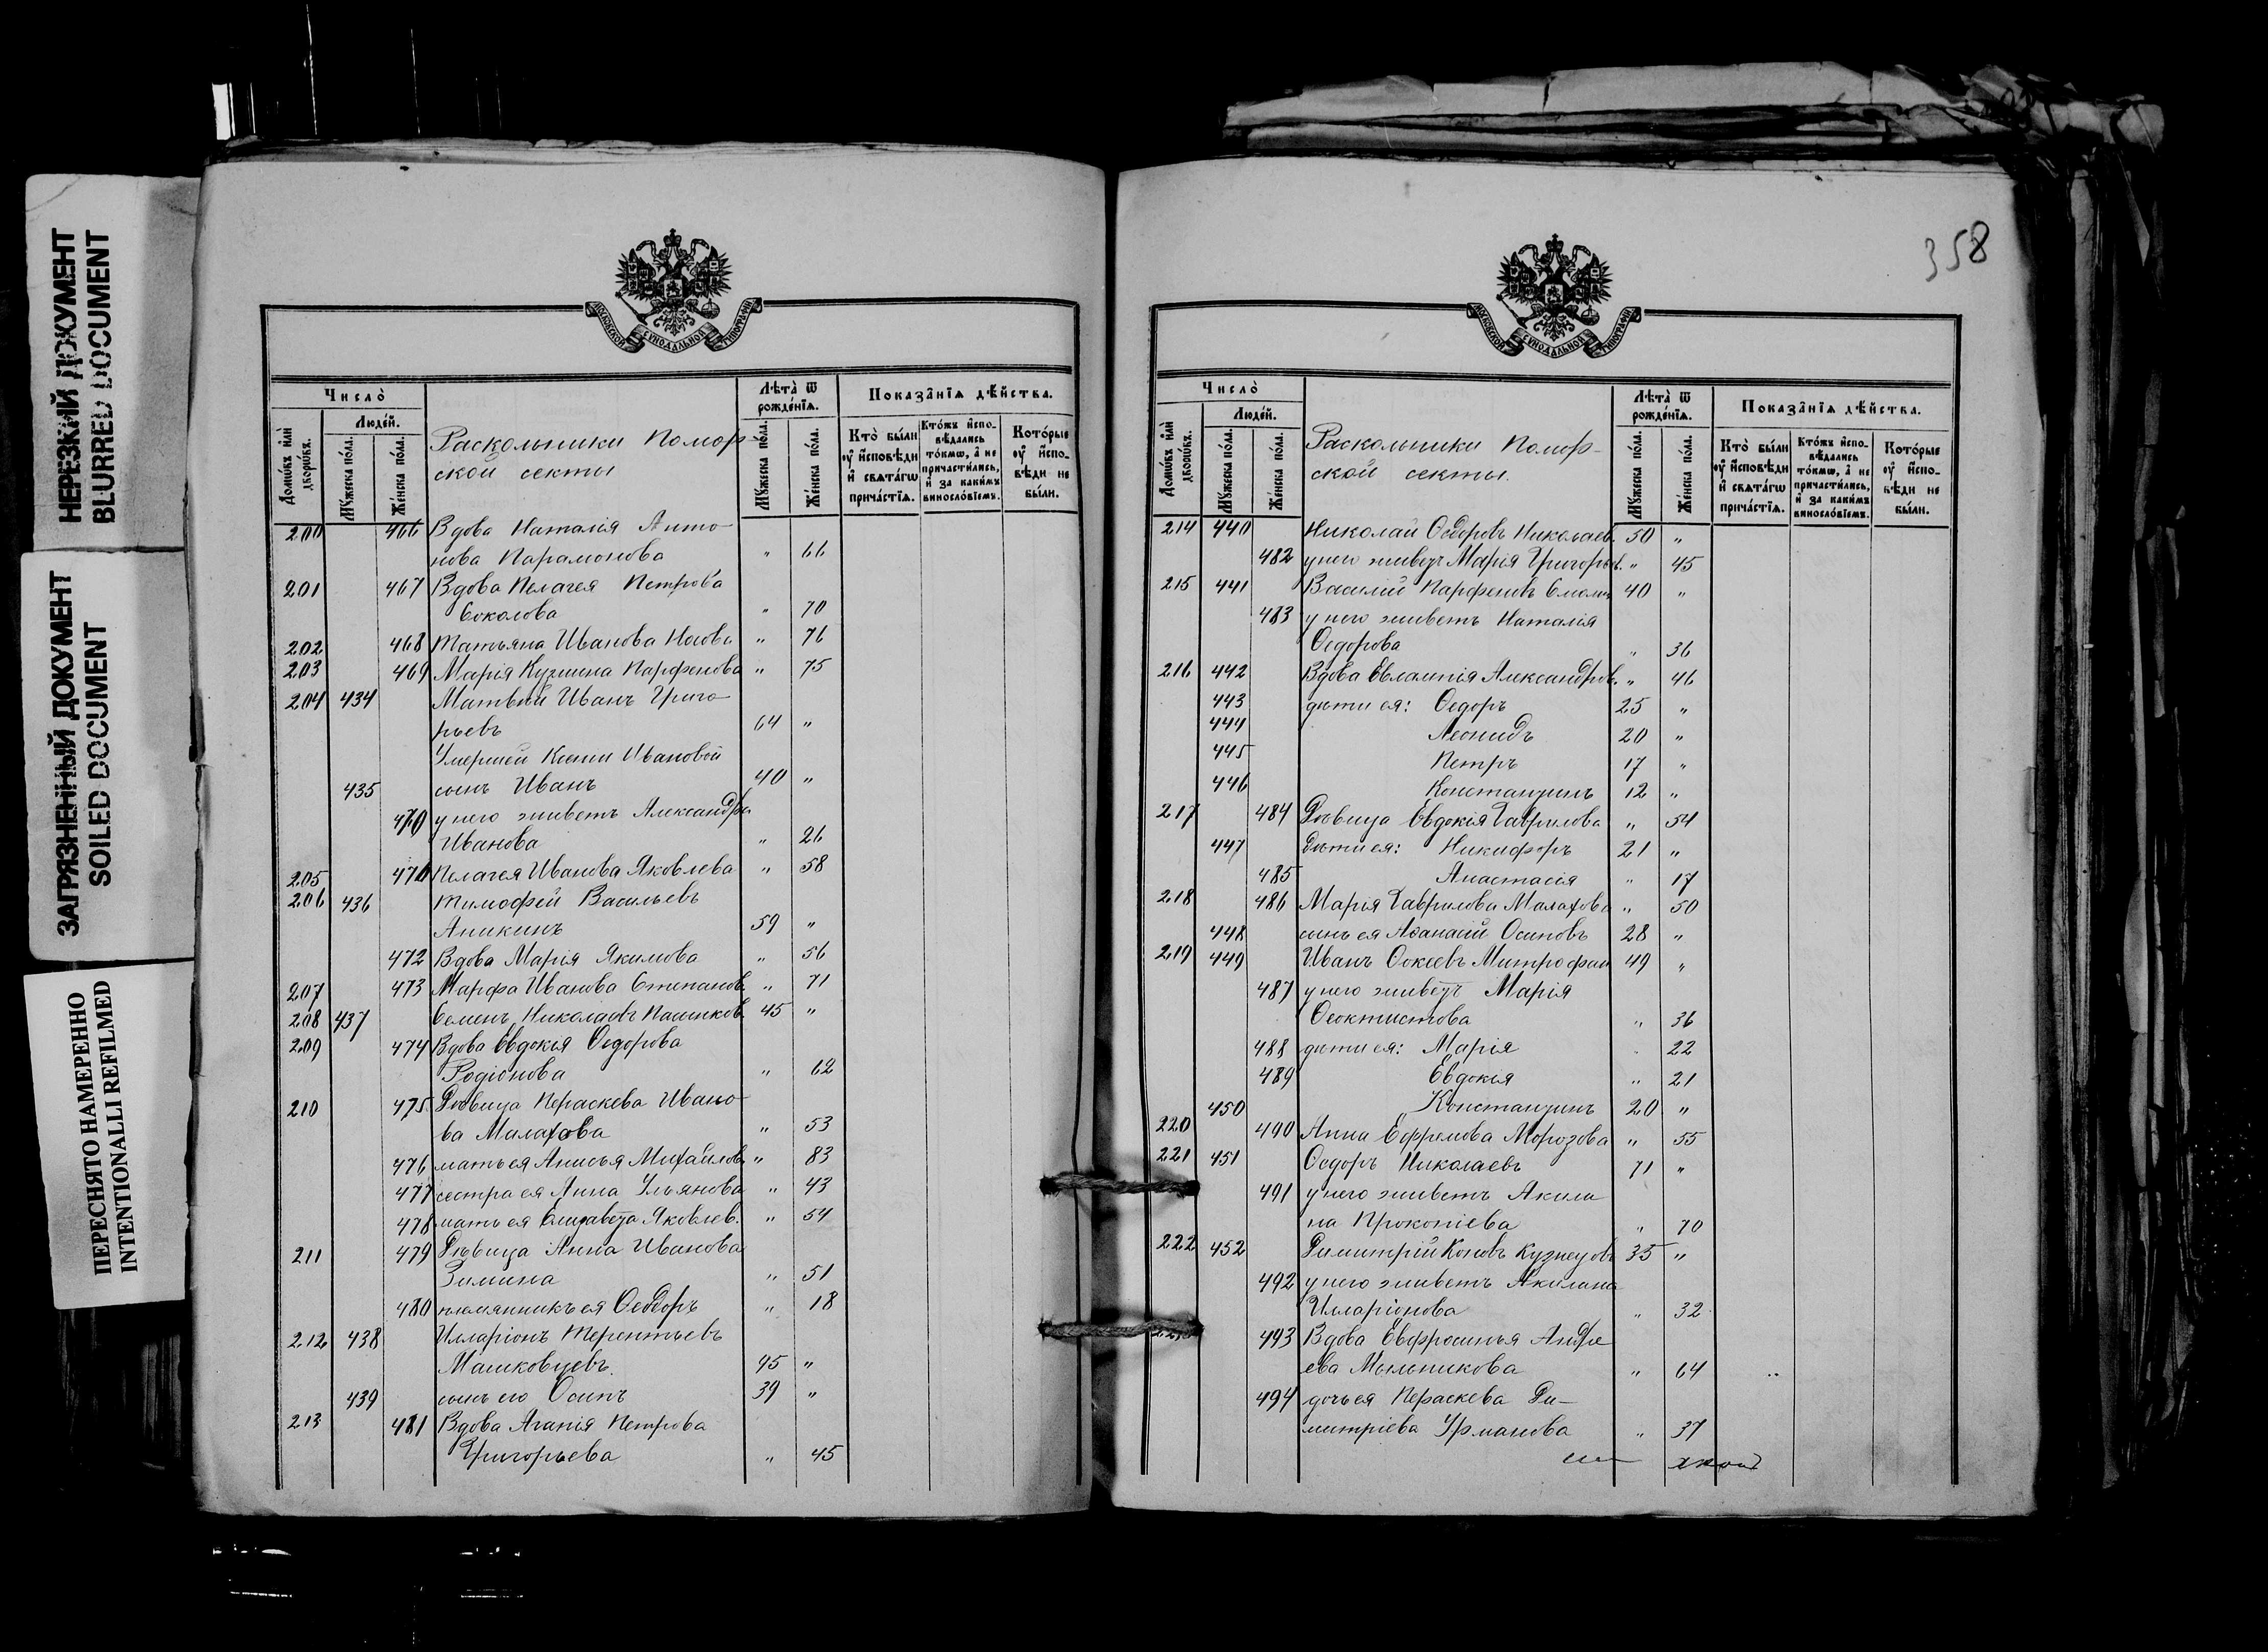 НЕРЕЗКИЙ ДОКУМЕНТ
BLURRED DOCUMENT
ЗАГРЯЗНЕННЫЙ ДОКУМЕНТ
SOILED DOCUMENT
ПЕРЕСНЯТО НАМЕРЕННО
INTENTIONALI REFILMED
МОСКОВСКОЙ СУНОДАЛЬНОЙ ТИПОГРАФІИ
Число̀
Домѡ́въ и҆лѝ дворѡ́въ.
Люде́й.
Мꙋ́жеска по́ла.
Же́нска по́ла.
Раскольники Помор-
ской секты
Лѣта̀ ѿ рожде́нїѧ.
Мꙋ́жеска по́ла.
Же́нска по́ла.
Показа̑нїѧ дѣ́йства.
Кто̀ бы́ли ᲂу҆ и҆сповѣди и҆ свѧта́гѡ прича́стїѧ.
Кто́жъ и҆спо-вѣдались то́кмѡ, а҆ не причасти́лись, и҆ за каки́мъ винослѡ́вїемъ.
Кото́рые ᲂу҆ и҆спо-вѣди не бы́ли.
200 466 Вдова Наталія Анто-
нова Парамонова " 66
201 467 Вдова Пелагея Петрова
Соколова " 70
202 468 Татьяна Иванова Носова " 76
203 469 Марія Кузмина Парфенова " 75
204 434 Матвѣй Иванъ Григо-
рьевъ 64 "
Умершей Ксеніи Ивановой
435 сынъ Иванъ 40 "
470 у него живетъ Александра
Иванова " 26
205 471 Пелагея Иванова Яковлева " 58
206 436 Тимофей Васильевъ
Аникинъ 59 "
472 Вдова Марія Якимова " 56
207 473 Марфа Иванова Степанов. " 71
208 437 Семенъ Николаевъ Пашков. 45 "
209 474 Вдова Евдокія Ѳедорова
Родіонова " 62
210 475 Дѣвица Пераскева Ивано-
ва Малахова " 53
476 мать ея Анисья Михайлов. " 83
477 сестра ея Анна Ульянова " 43
478 мать ея Елизавета Яковлев. " 54
211 479 Дѣвица Анна Иванова
Зимина " 51
480 племянникъ ея Ѳеодоръ " 18
212 438 Илларіонъ Терентьевъ
Машковцевъ. 45 "
439 сынъ его Осипъ 39 "
213 481 Вдова Агапія Петрова
Григорьева " 45
358
МОСКОВСКОЙ СУНОДАЛЬНОЙ ТИПОГРАФІИ
Число̀
Домѡ́въ и҆лѝ дворѡ́въ.
Люде́й.
Мꙋ́жеска по́ла.
Же́нска по́ла.
Раскольники Помор-
ской секты.
Лѣта̀ ѿ рожде́нїѧ.
Мꙋ́жеска по́ла.
Же́нска по́ла.
Показа̑нїѧ дѣ́йства.
Кто̀ бы́ли ᲂу҆ и҆сповѣди и҆ свѧта́гѡ прича́стїѧ.
Кто́жъ и҆спо-вѣдались то́кмѡ, а҆ не причасти́лись, и҆ за каки́мъ винослѡ́вїемъ.
Кото́рые ᲂу҆ и҆спо-вѣди не бы́ли.
214 440 Николай Ѳедоровъ Николаев. 50 "
482 у него живетъ Марія Григорьев. " 45
215 441 Василій Парфеновъ 40 "
483 у него живетъ Наталія
Ѳедорова " 36
216 442 Вдова Евлампія Александров. " 46
443 дѣти ея: Ѳедоръ 25 "
444 Леонидъ 20 "
445 Петръ 17 "
446 Константинъ 12 "
217 484 Дѣвица Евдокія Гаврилова " 54
447 Дѣти ея: Никифоръ 21 "
485 Анастасія " 17
218 486 Марія Гаврилова Малахова " 50
448 сынъ ея Аѳанасій Осиповъ 28 "
219 449 Иванъ Митрофан 49 "
487 у него живетъ Марія
Ѳеоктистова " 36
488 дѣти ея: Марія " 22
489 Евдокія " 21
450 Константинъ 20 "
220 490 Анна Ефремова Морозова " 55
221 451 Ѳедоръ Николаевъ 71 "
491 у него живетъ Акили
на Прокопіева " 70
222 452 Димитрій Коновъ Кузнецовъ 35 "
492 у него живетъ Акилина
Илларіонова " 32
493 Вдова Евфросинья Андре
ева Мыльникова " 64
494 дочь ея Пераскева Ди-
митріева Урманова " 37